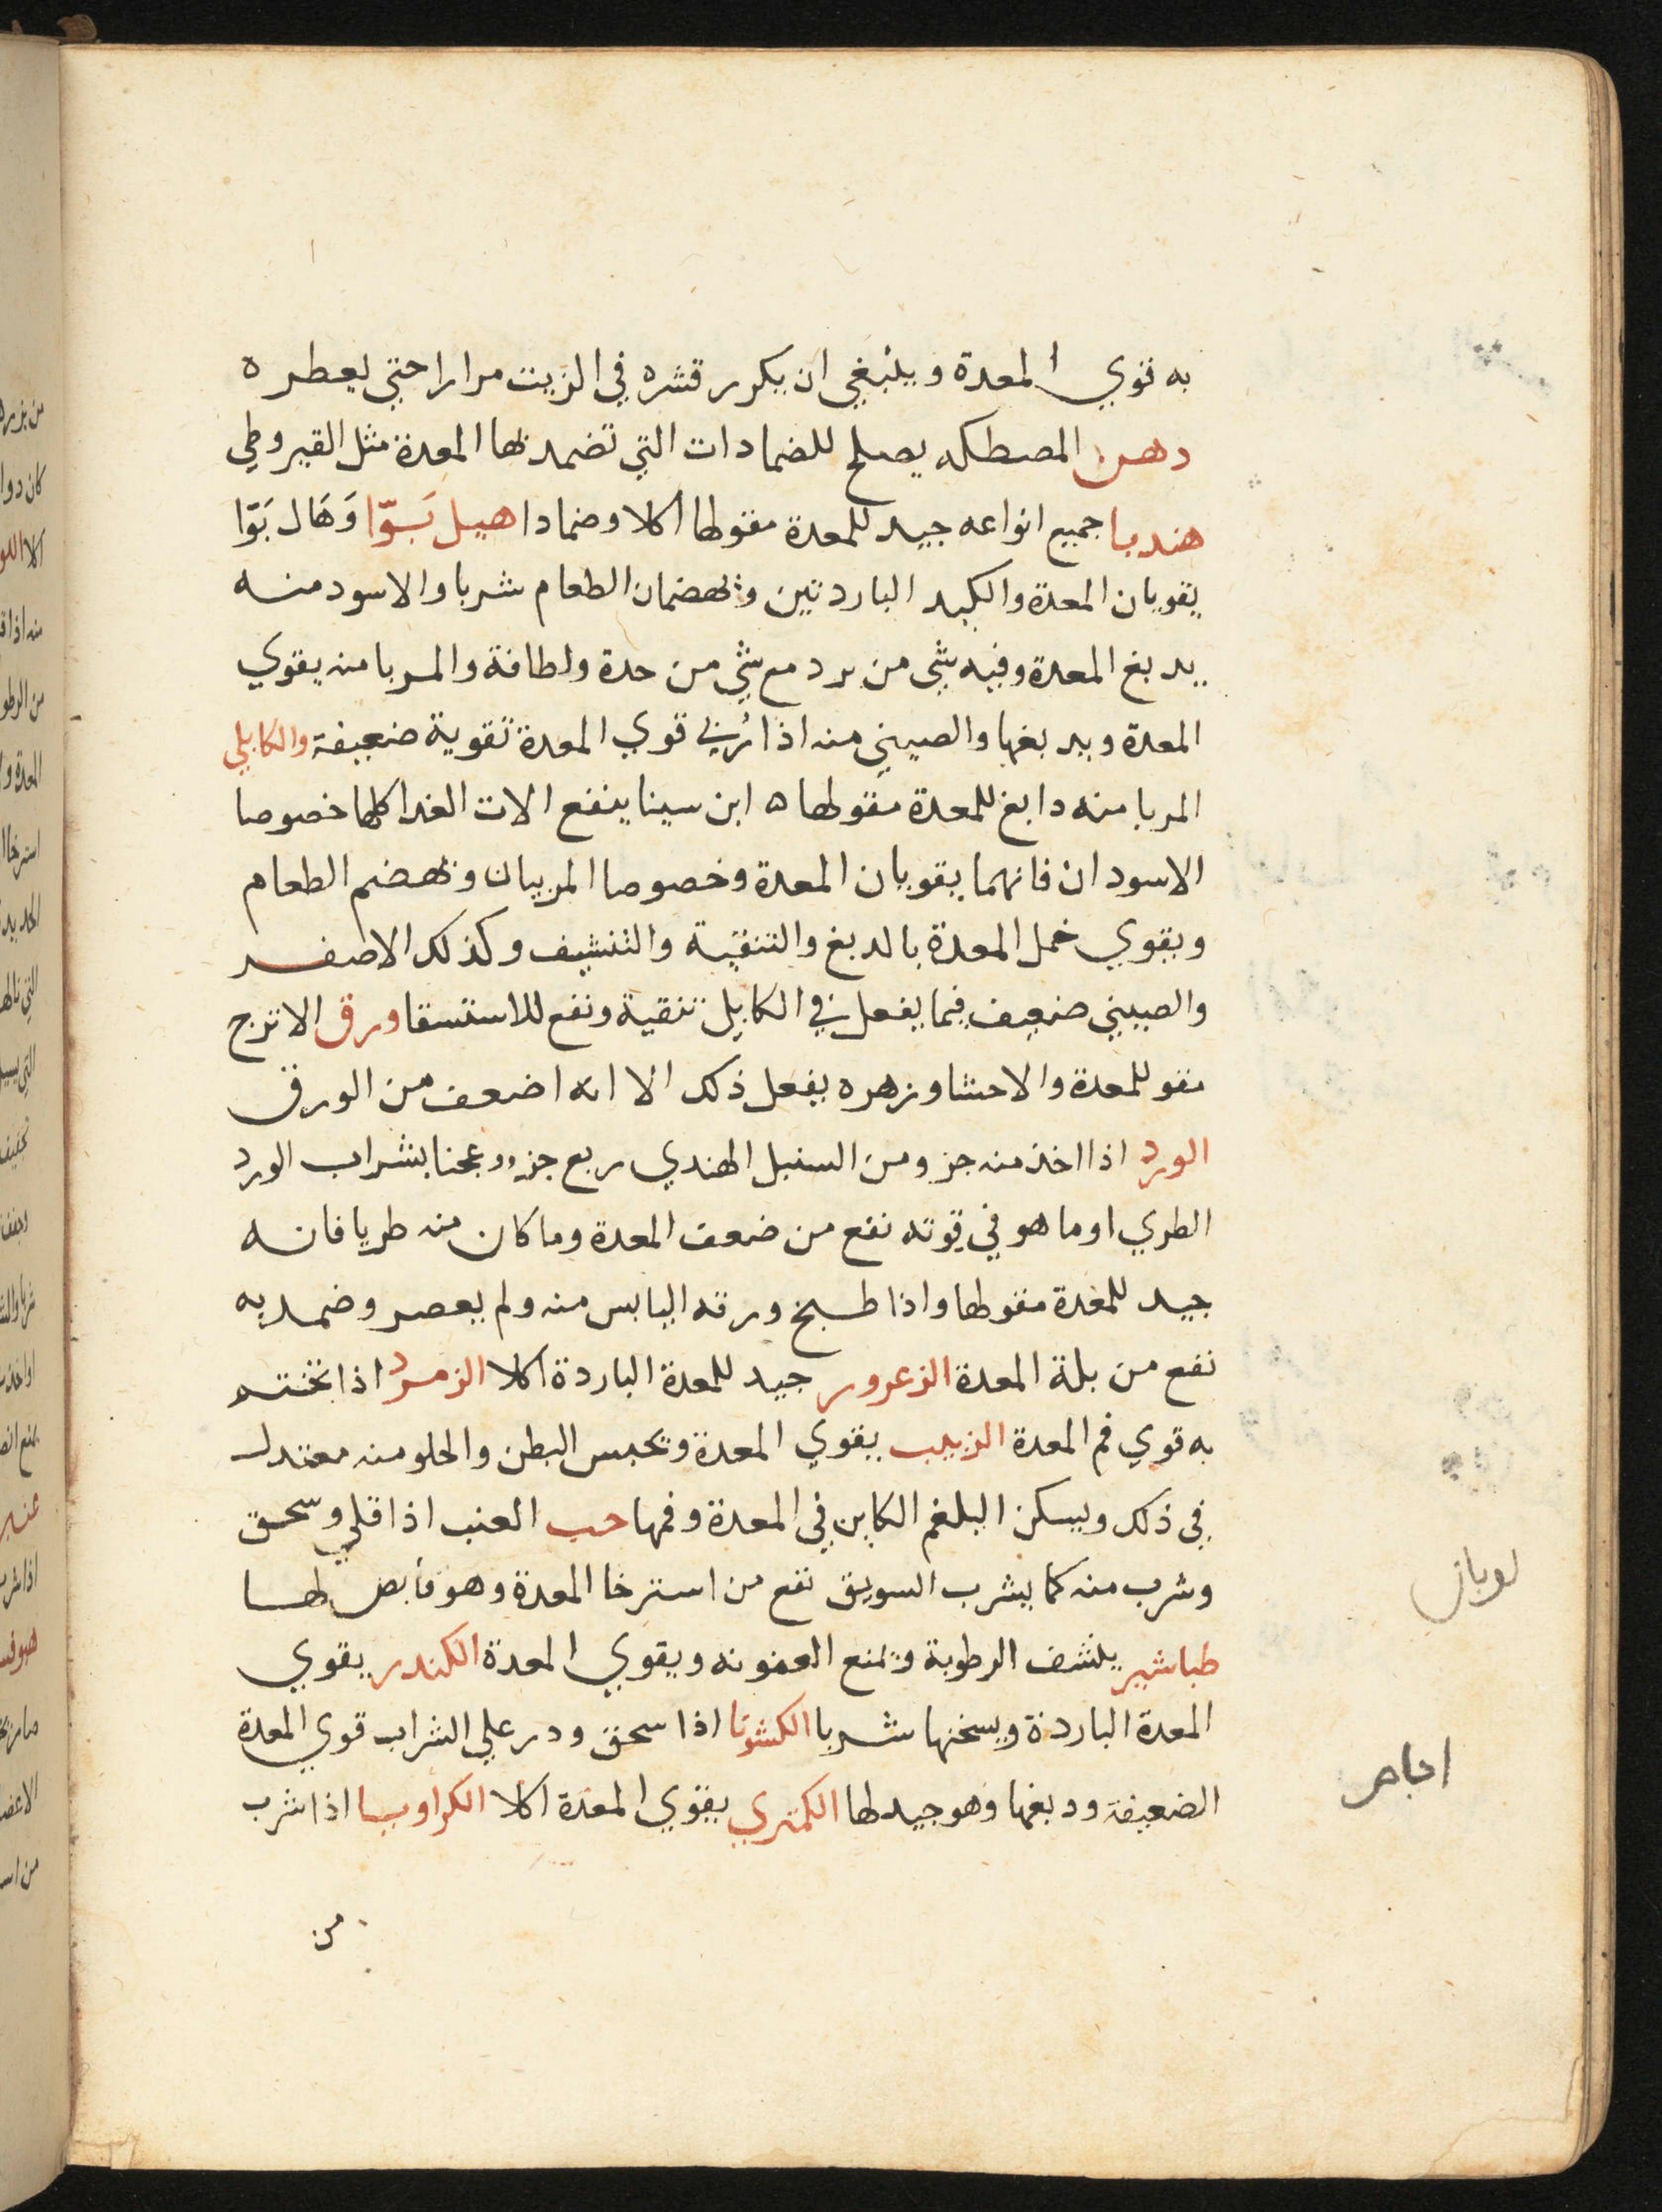 به قوي المعدة وينبغي ان يكرر قشره في الزيت مرارا حتي يعطره
دهن المصطكه يصلح للضمادات التي تضمد بها المعدة مثل القيروطي
هندبا جميع انواعه جيد للمعدة مقولها اكلا وضمادا هيل بَوّا وَهَال بَوّا
يقويان المعدة والكبد الباردتين ويهضمان الطعام شربا والاسود منه
يدبغ المعدة وفيه شي من برد مع شي من حدة ولطافة والمربا منه يقوي
المعدة ويدبغها والصيني منه اذا رُبي قوي المعدة تقوية ضعيفة والكابلي
المربا منه دابغ للمعدة مقولها ه ابن سينا ينفع الات الغدا كلها خصوصا
الاسودان فانهما يقويان المعدة وخصوصا المربيان ويهضم الطعام
ويقوي خمل المعدة بالدبغ والتنقية والتنشيف وكذلك الاصفر
والصيني ضعيف فيما يفعل في الكابلي تنقية ونفع للاستسقا ورق الاترج
مقو للمعدة والاحشا وزهره يفعل ذلك الا انه اضعف من الورق
الورد اذا اخذ منه جز ومن السنبل الهندي ربع جزء وعجنا بشراب الورد
الطري او ما هو في قوته نفع من ضعف المعدة وما كان منه طريا فانه
جيد للمعدة مقولها واذا طبخ ورقه اليابس منه ولم يعصر وضمد به
نفع من بلة المعدة الزعرور جيد للمعدة الباردة اكلا الزمرد اذا تختم
به قوي فم المعدة الزبيب يقوي المعدة ويحبس البطن والحلو منه معتدل
في ذلك ويسكن البلغم الكاين في المعدة وفمها حب العنب اذا قلي وسحق
وشرب منه كما يشرب السويق نفع من استرخا المعدة وهو قابض لها
طباشير ينشف الرطوبة ويمنع العفونه ويقوي المعدة الكندر يقوي
المعدة الباردة ويسخنها شربا الكشوثا اذا سحق ودر علي الشراب قوي المعدة
الضعيفة ودبغها وهو جيد لها الكمثري يقوي المعدة اكلا الكراويا اذا شرب
من